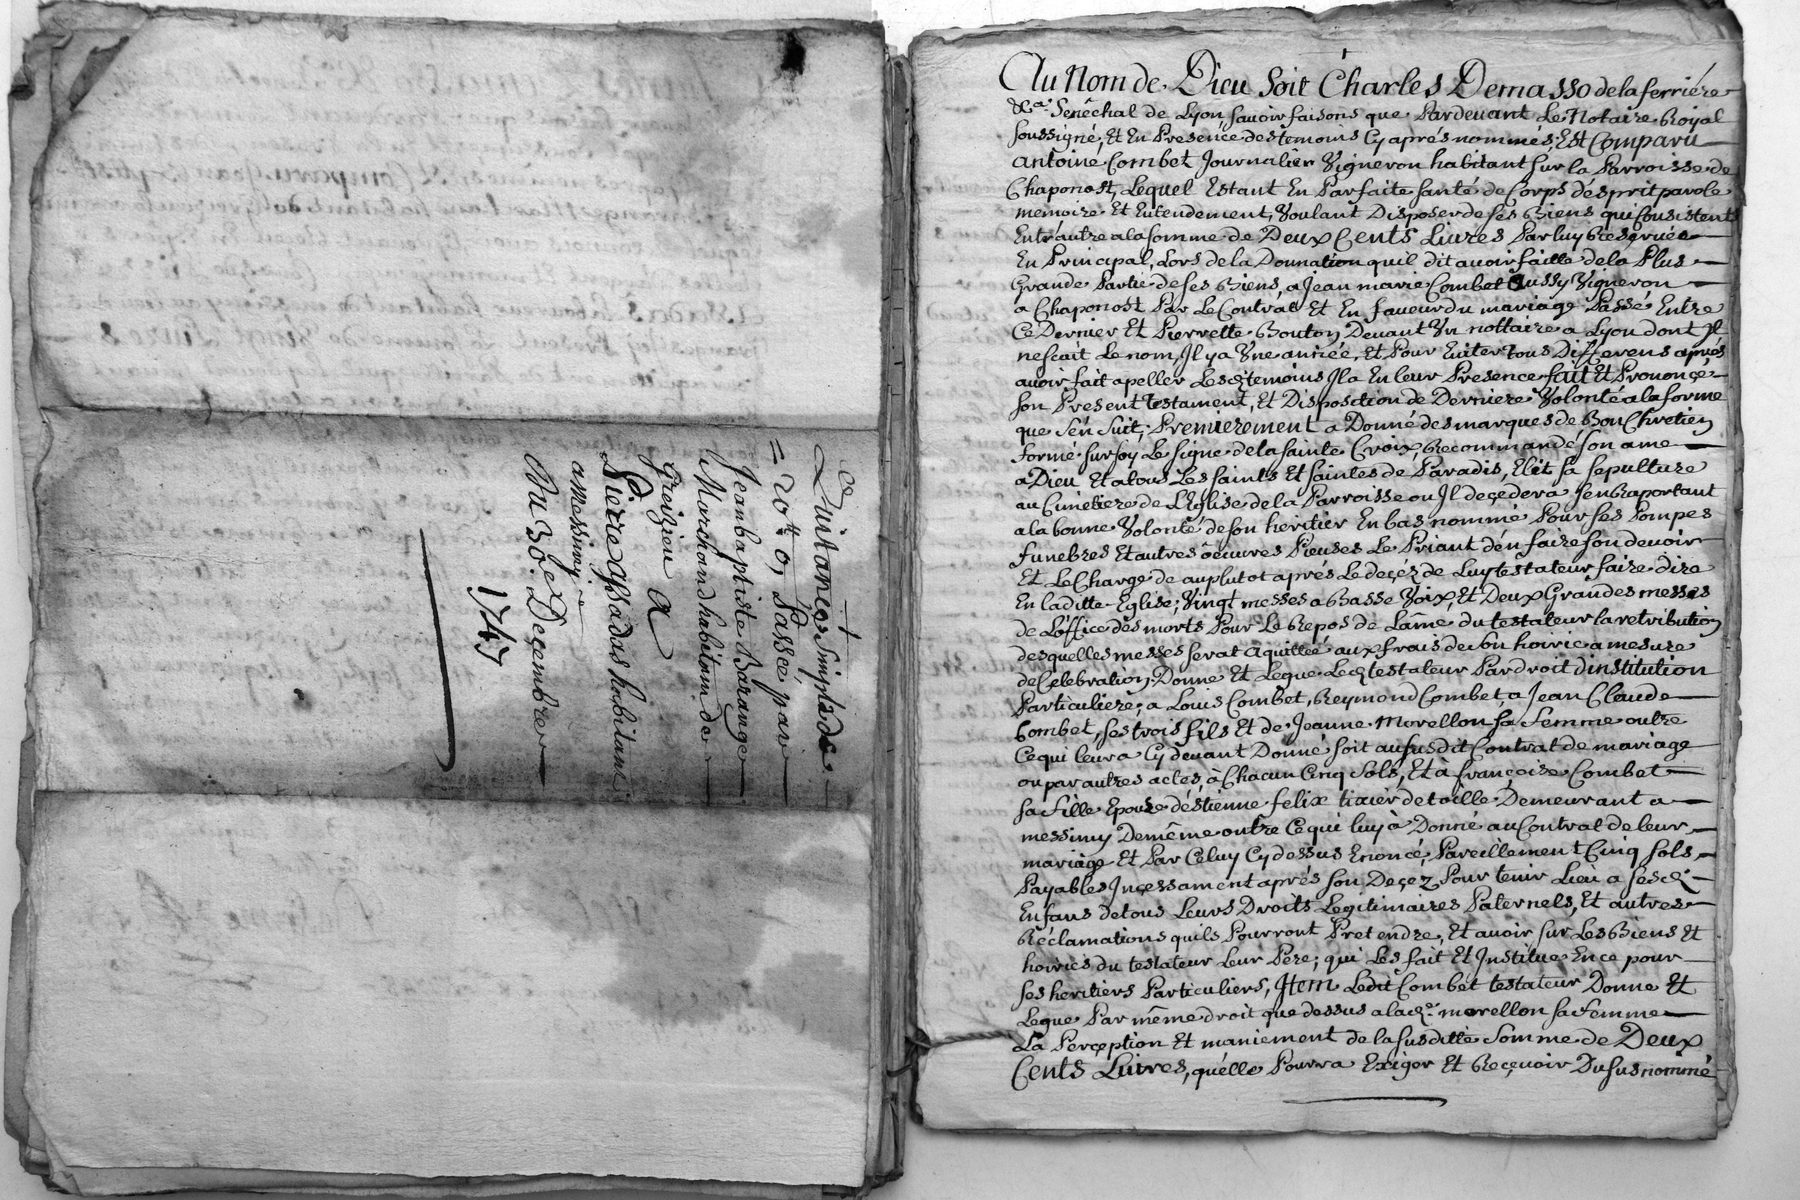 Quitance Simple de
= 20lt 0s Passée par
Jean baptiste Barange
Marchand habitant de
Greizieu a
Pierre assadas habitant
a messimy
Du 30e Decembre
1747
Au Nom de Dieu soit Charles Demasso de la ferriére
&a. Senéchal de Lyon savoir faisons que Pardevant Le Notaire Royal
soussigné, Et En Presence des temoins Cy aprés nommés, Est Comparu
antoine Combet Journalier Vigneron habitant sur la Parroisse de
Chaponost, Lequel Estant En Parfaite santé de Corps d'ésprit parole
memoire Et Entendement, Voulant Disposer de ses Biens qui Consistent
Entr'autre a la somme de Deux Cents Livres Par luy Reservée
En Principal, Lors de la Donnation quil dit avoir faitte de la Plus
Grande Partie de ses Biens, a Jean marie Combet Aussy Vigneron
a Chaponost Par Le Contrat Et En faveur du mariage Passé Entre
Ce Dernier Et Pierrette Bouton Devant Un nottaire a Lyon dont Il
ne sçait Le nom, Il y a Une année, Et Pour Eviter tous Differens aprés
avoir fait apeller Lesd. temoins Il a En leur Presence fait Et Prononçé
son Present testament, Et Disposition de Derniere Volonté a la forme
que s'en suit, Premierement a Donné des marques de Bon Chretien
formé sur soy Le signe de la sainte Croix, Recommandé son ame
a Dieu Et a tous Les saints Et saintes de Paradis, Elit sa sepulture
au Cimetiere de L'Eglise de la Parroisse ou Il deçedera s'en Raportant
a la bonne Volonté de son heritier En bas nommé Pour ses Pompes
funebres Et autres oeuvres Pieuses Le Priant d'én faire son devoir
Et Le Charge de au plutot aprés Le deçéz de Luy testateur faire Dire
En laditte Eglise, Vingt messes a Basse Voix, Et Deux Grandes messes
de L'office des morts Pour Le Repos de L'ame du testateur la retribution
desquelles messes serat aquittée aux frais de son hoirie a mesure
de Celebration, Donne Et Legue Led. testateur Par droit d'institution
Particuliere, a Louis Combet, Reymond Combet, a Jean Claude
Combet, ses trois fils Et de Jeanne Morellon sa femme outre
Ce qui leur a Cy devant Donné soit au susdit Contrat de mariage
ou par autres actes, à Chacun Cinq Sols, Et à françoise Combet
sa fille Epouse d'éstienne felix tixier de toille Demeurant a
messimy Deméme outre Ce qui luy à Donné au Contrat de leur
mariage Et Par Celuy Cy dessus Enoncé, Pareillement Cinq sols,
Payables Inçessament aprés son Deçez, Pour tenir Lieu a sesd.
Enfans de tous Leurs Droits Legitimaires Paternels, Et autres
Réclamations quils Pourront Pretendre, Et avoir sur Les Biens Et
hoiries du testateur Leur Pere; qui Les fait Et Institue En ce pour
ses heritiers Particuliers, Item Ledit Combet testateur Donne Et
Legue Par même droit que dessus a lad. morellon sa femme
La Perçeption Et maniement de la susditte Somme de Deux
Cents Livres, quélle Pourra Exiger Et Reçevoir Du susnommé